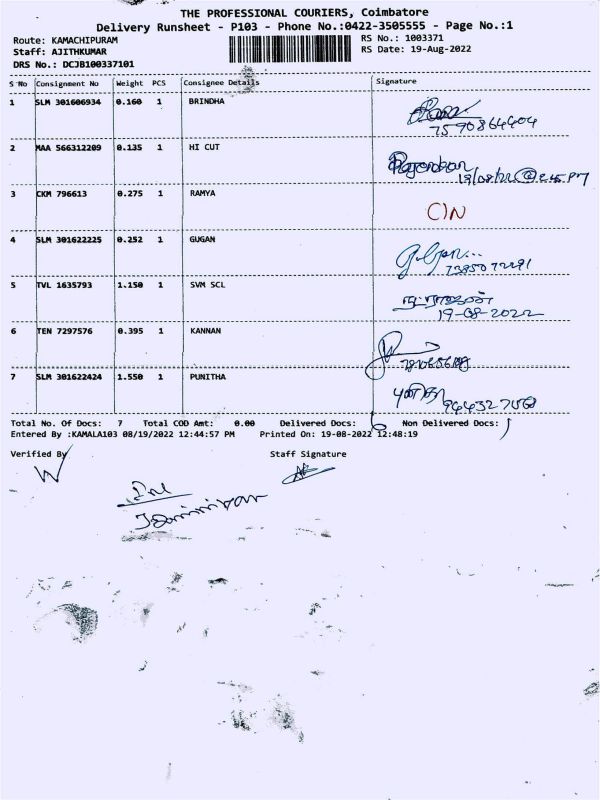 THE PROFESSIONAL COURIERS, Coimbatore
Delivery Runsheet - P103 - Phone No.:0422-3505555 - Page No.:1
Route: KAMACHIPURAM RS No.: 1003371
Staff: AJITHKUMAR RS Date: 19-Aug-2022
DRS No.: DCJB100337101
S No Consignment No Weight PCS Consignee Details Signature
1 SLM 301606934 0.160 1 BRINDHA
7590864404
2 MAA 566312209 0.135 1 HI CUT
19/08/22@2.45 PM
3 CKM 796613 0.275 1 RAMYA
C/N
4 SLM 301622225 0.252 1 GUGAN
5 TVL 1635793 1.150 1 SVM SCL
19-08-2022
6 TEN 7297576 0.395 1 KANNAN
7 SLM 301622424 1.550 1 PUNITHA
புனிதா
Total No. Of Docs: 7 Total COD Amt: 0.00 Delivered Docs: 6 Non Delivered Docs: 1
Entered By :KAMALA103 08/19/2022 12:44:57 PM Printed On: 19-08-2022 12:48:19
Verified By Staff Signature